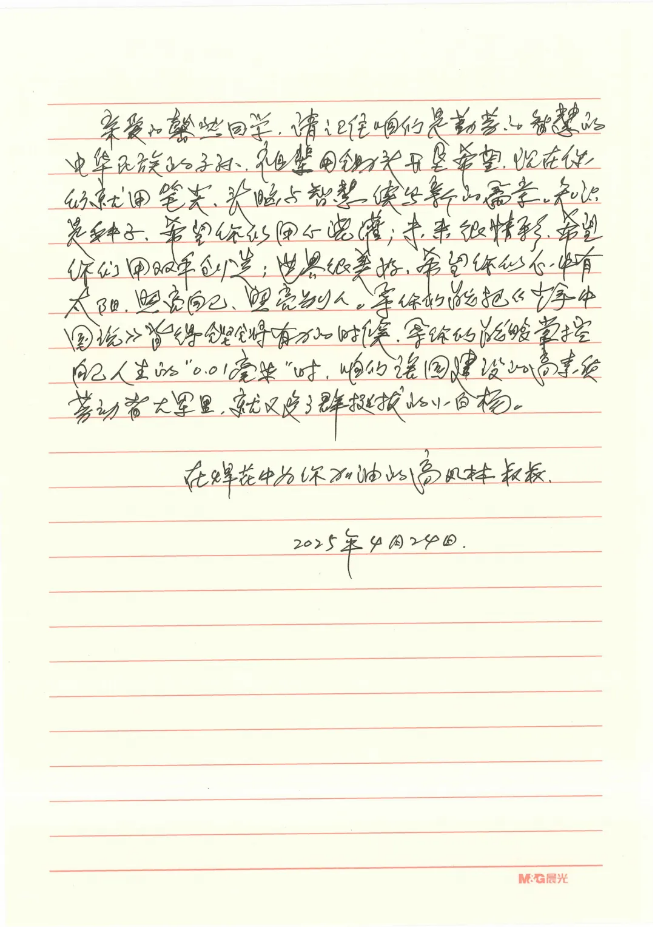 亲爱的馨然同学，请记住咱们是勤劳与智慧的
中华民族的子孙，祖辈用锄头开垦希望，现在你
们就用笔尖、长眠与智慧续写新的篇章。知识
是种子，希望你们用心浇灌；未来很精彩，希望
你们用双手创造；世界很美好，希望你们心中有
太阳，照亮自己、照亮别人。等你们能把《少年中
国说》背得铿锵有力的时候，等你们能够掌控
自己人生的“0.01毫米”时，咱们强国建设的高素质
劳动者大军里，就又多了群挺拔的小白杨。
在焊花中为你加油的高凤林叔叔.
2025年4月24日.
M&G晨光